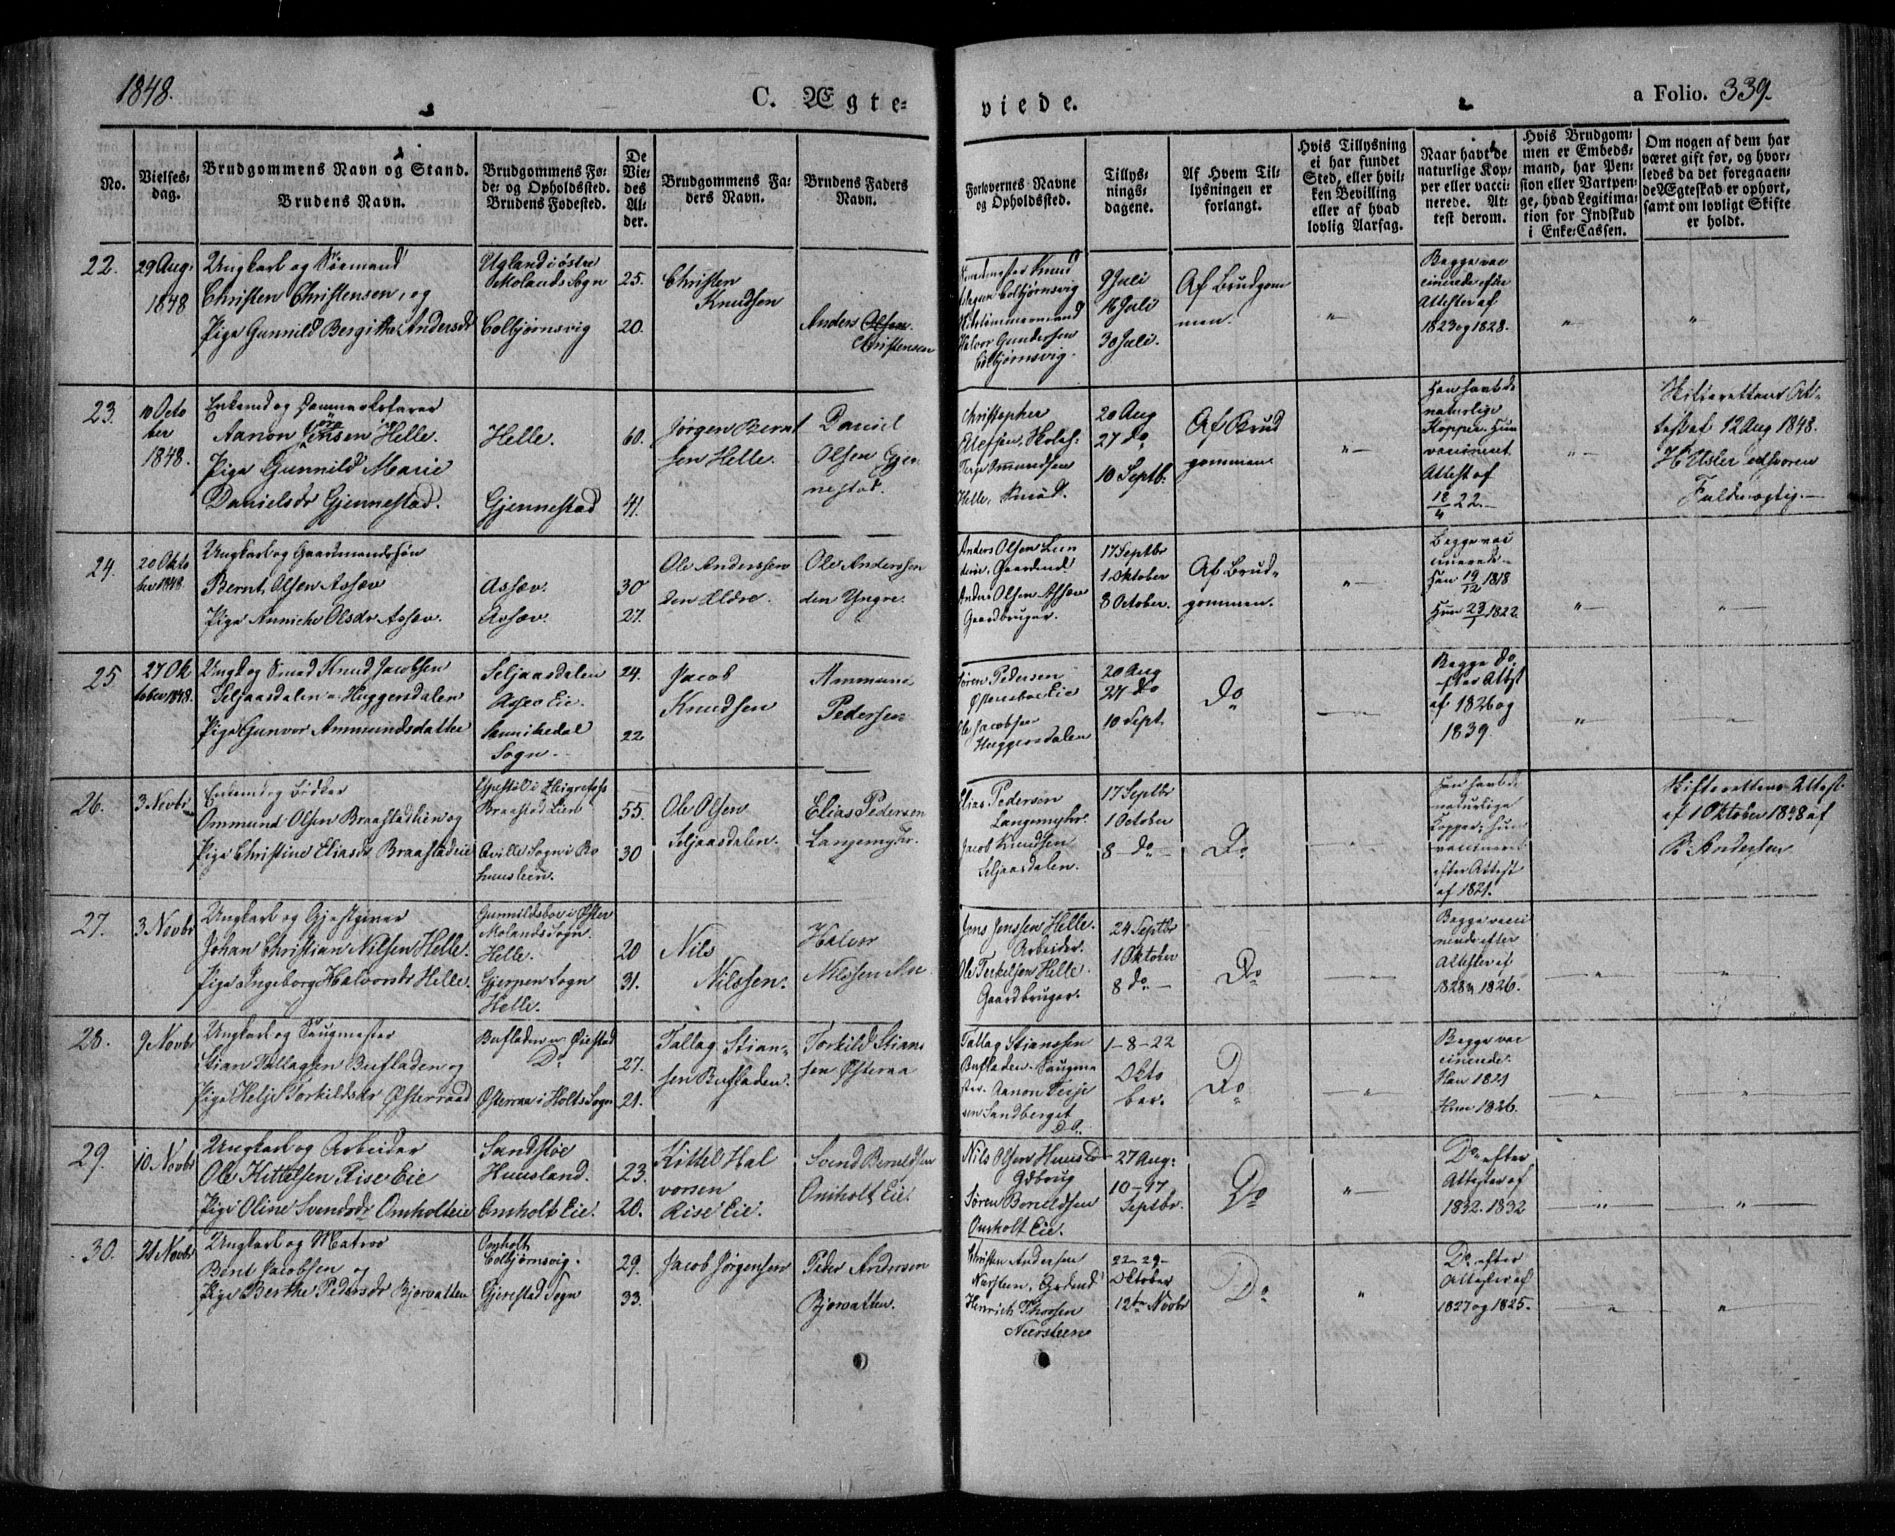 1848.
C. Ægte-
viede.
a Folio. 339.
No.
Vielses-
dag.
Brudgommens Navn og Stand.
Brudens Navn.
Brudgommens Fø-
de- og Opholdssted.
Brudens Fødested.
De
Vie-
des
Al-
der.
Brudgommens Fa-
ders Navn.
Brudens Faders
Navn.
Forlovernes Navne
og Opholdssted.
Tillys-
nings-
dagene.
Af Hvem Til-
lysningen er
forlangt.
Hvis Tillysning
ei har fundet
Sted, eller hvil-
ken Bevilling
eller af hvad
lovlig Aarsag.
Naar havt de
naturlige Kop-
per eller vacci-
nerede. At-
test derom.
Hvis Brudgom-
men er Embeds-
mand, har Pen-
sion eller Vartpen-
ge, hvad Legitima-
tion for Indskud
i Enke-Cassen.
Om nogen af dem har
været gift før, og hvor-
ledes da det foregaaen-
de Ægteskab er ophørt,
samt om lovligt Skifte
er holdt.
22.
29 Aug.
1848
Ungkarl og Sømand
Christen Christensen, og
Pige Gunnild Bergithe Andersdr
Ugland i østre
Molands Sogn
Colbjørnsvig
25.
20.
Christen
Knudsen
Anders Olsen.
Christensen
Knud
Colbjørnsvig
Halvor Gundersen
Colbjørnsvig.
9 Juli
16 Juli
30 Juli.
Af Brudgom
men.
Begge vac
cinerede efter
Attester af
1823 og 1828.
23.
10 Octo
ber
1848.
Enkemd og
Aanon Jensen Helle.
Pige Gunnild Marie
Danielsdr Gjennestad.
Helle.
Gjennestad
60.
41.
Jørgen Bernt
sen Helle.
Daniel
Olsen Gjen
nestad.
Christopher
Olefsen,
Terje Ommundsen
Helle, Smed.
20 Aug
27 do
10 Septb.
Af Brud
gommen
Han havt de
naturlige
Kopper. Hun
vaccineret
Attest af
12/4 22.
Skifterettens At-
test af 12 Aug 1848.
edsvoren
Fuldmægtig.
24.
20 Okto
ber 1848.
Ungkarl og Gaardmandssøn
Bernt Olsen Assæv
Pige Anniche Olsdr Assæv.
Assæv.
Assæv.
30
27.
Ole Anderssen
den Ældre.
Ole Anderssen
den Yngre.
Anders Olsen
Gaardmd.
Anders Olsen Assæv
Gaardbruger.
17 Septbr
1. Oktober
8 October.
Af Brud-
gommen.
Begge vac
cinerede
Han 19/12 1818
Hun 23/7 1822
25
27 Ok
tober 1848.
Ungk og Smed Knud Jacobsen
Seljaasdalen
Pige Gunvor Ammundsdatter
Seljaasdalen
Assev Eie.
Sannikedal
Sogn.
24.
22
Jacob
Knudsen
Ammund
Pedersen
Søren Pedersen
Ole Jacobsen
Huggersdalen
20 Aug
27 do
10 Sept.
do
Begge do
efter Attest
af 1826 og
1839
26.
3 Novbr
Enkemd og Bødker
Ommund Olsen Braastadeien og
Pige Christine Eliasdr Braastadeie
Braastad Eien
55.
30
Ole Olsen
Seljaasdalen.
Elias Pedersen
Langemyhr.
Elias Pedersen
Langemyhr.
Jacob Knudsen
Seljaasdalen.
17 Septbr
1 October
8 do
Do
Han havt de
naturlige
Kopper; Hun
vaccineret
efter Attest
af 1821.
Skifterettens Attest
af 1 Oktober 1848 af
Andersen
27.
3 Novbr
Ungkarl og Gjestgiver
Johan Christian Nilsen Helle.
Pige Ingeborg Halvorsdr Helle.
Gunnildsboe i Øster
Molands Sogn.
Helle.
Gjerpen Sogn
Helle.
20
31.
Nils
Nilssen.
Halvor
Nilssen
Jens Jensen Helle.
Arbeider.
Ole Terkelsen Helle.
Gaardbruger.
24 Septbr
1 Oktober
8 do
Do
Begge vacci
nerede efter
Attester af
1828 og 1826.
28.
9 Novbr
Ungkarl og Saugmester
Stian Tallagsen Bufladen og
Pige Helje Torkildsdr Østerraad
Bufladen Øiestad
Do
Østeraa i Holts Sogn
27.
21.
Tallag Stian-
sen Bufladen.
Torkild Stian
sen Østeraa
Tallag Stiansen
Bufladen. Saugme
ster. Aanon Terje
sen Sandberget
Do.
1-8-22
Okto
ber.
Do
Begge vac
cinerede.
Han 1821
Hun 1826.
29.
10 Novbr
Ungkarl og Arbeider
Ole Kittelsen Rise Eie
Pige Oline Svendsdr Omholteie
Sandstøe
Huusland.
Omholt Eie.
23.
20.
Kittel Hal
vorsen
Rise Eie.
Svend Beruldsen
Omholt Eie.
Nils Olsen
Gdbrug
Søren Boruldsen
Omholt Eie.
27 Aug:
10-17
Septbr.
Do
Do efter
Attester af
1832. 1832
30.
21 Novbr
Ungkarl og Matros
Bent Jacobsen og
Pige Berthe Pedersdr Bjorvatten
Omholt
Colbjørnsvig.
Gjerestad Sogn
29.
33.
Jacob Jørgensen
Peder Andersen
Bjorvatten.
Christen Andersen
Neersteen, Grdmd
Henrich
Neersteen
22-29-
Oktober
12te Novbr
Do
Do efter
Attester af
1827 og 1825.